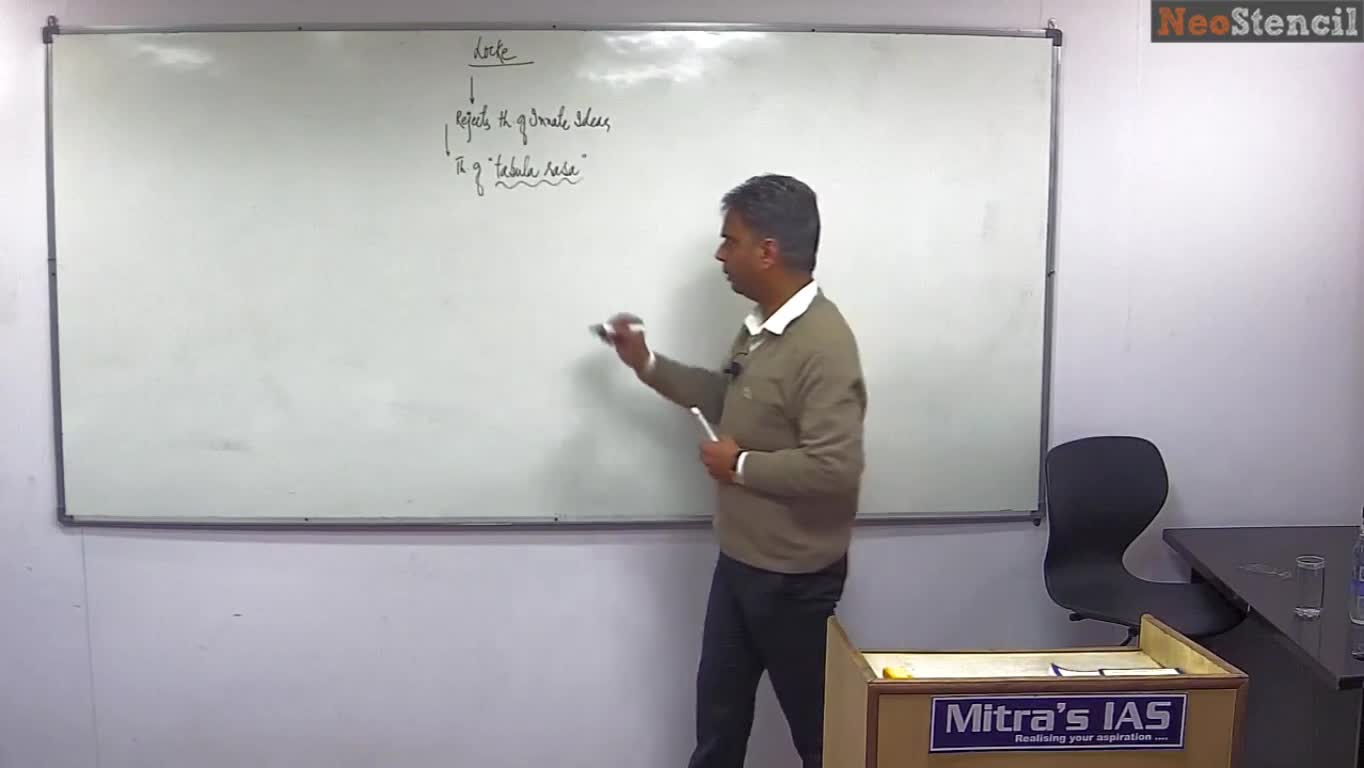 NeoStencil
Locke
Rejects th of Innate Ideas
Th of "tabula rasa"
Mitra's IAS
Realising your aspiration ....